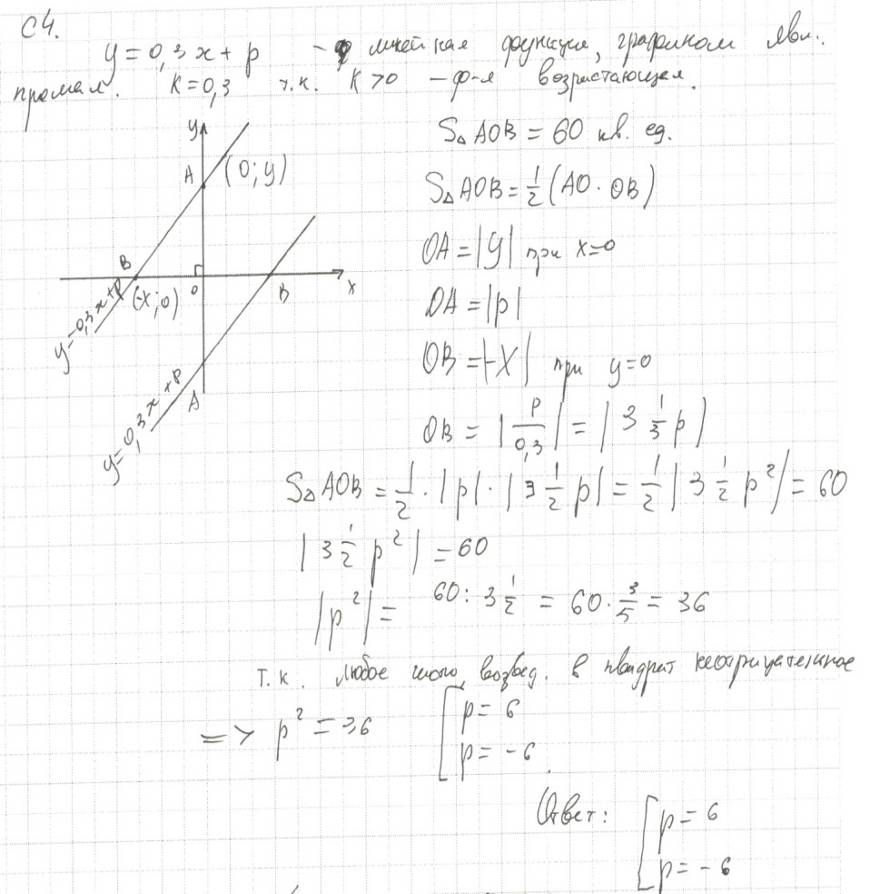 C4.
y = 0,3x + p - линейная функция, графиком явл.
прямая. K = 0,3 т.к. K > 0 - ф-я возрастающая.
y
A (0; y)
B
(-x; 0)
0
B
x
A
y = 0,3x + p
y = 0,3x + p
S△AOB = 60 кв. ед.
S△AOB = 1/2 (AO · OB)
OA = |y| при x = 0
OA = |p|
OB = |-x| при y = 0
OB = |p/0,3| = |3 1/3 p|
S△AOB = 1/2 · |p| · |3 1/2 p| = 1/2 |3 1/2 p²| = 60
|3 1/2 p²| = 60
|p²| = 60 : 3 1/2 = 60 · 3/5 = 36
т.к. любое число, возвед. в квадрат неотрицательное
=> p² = 36 [ p = 6
p = -6.
Ответ: [ p = 6
p = -6